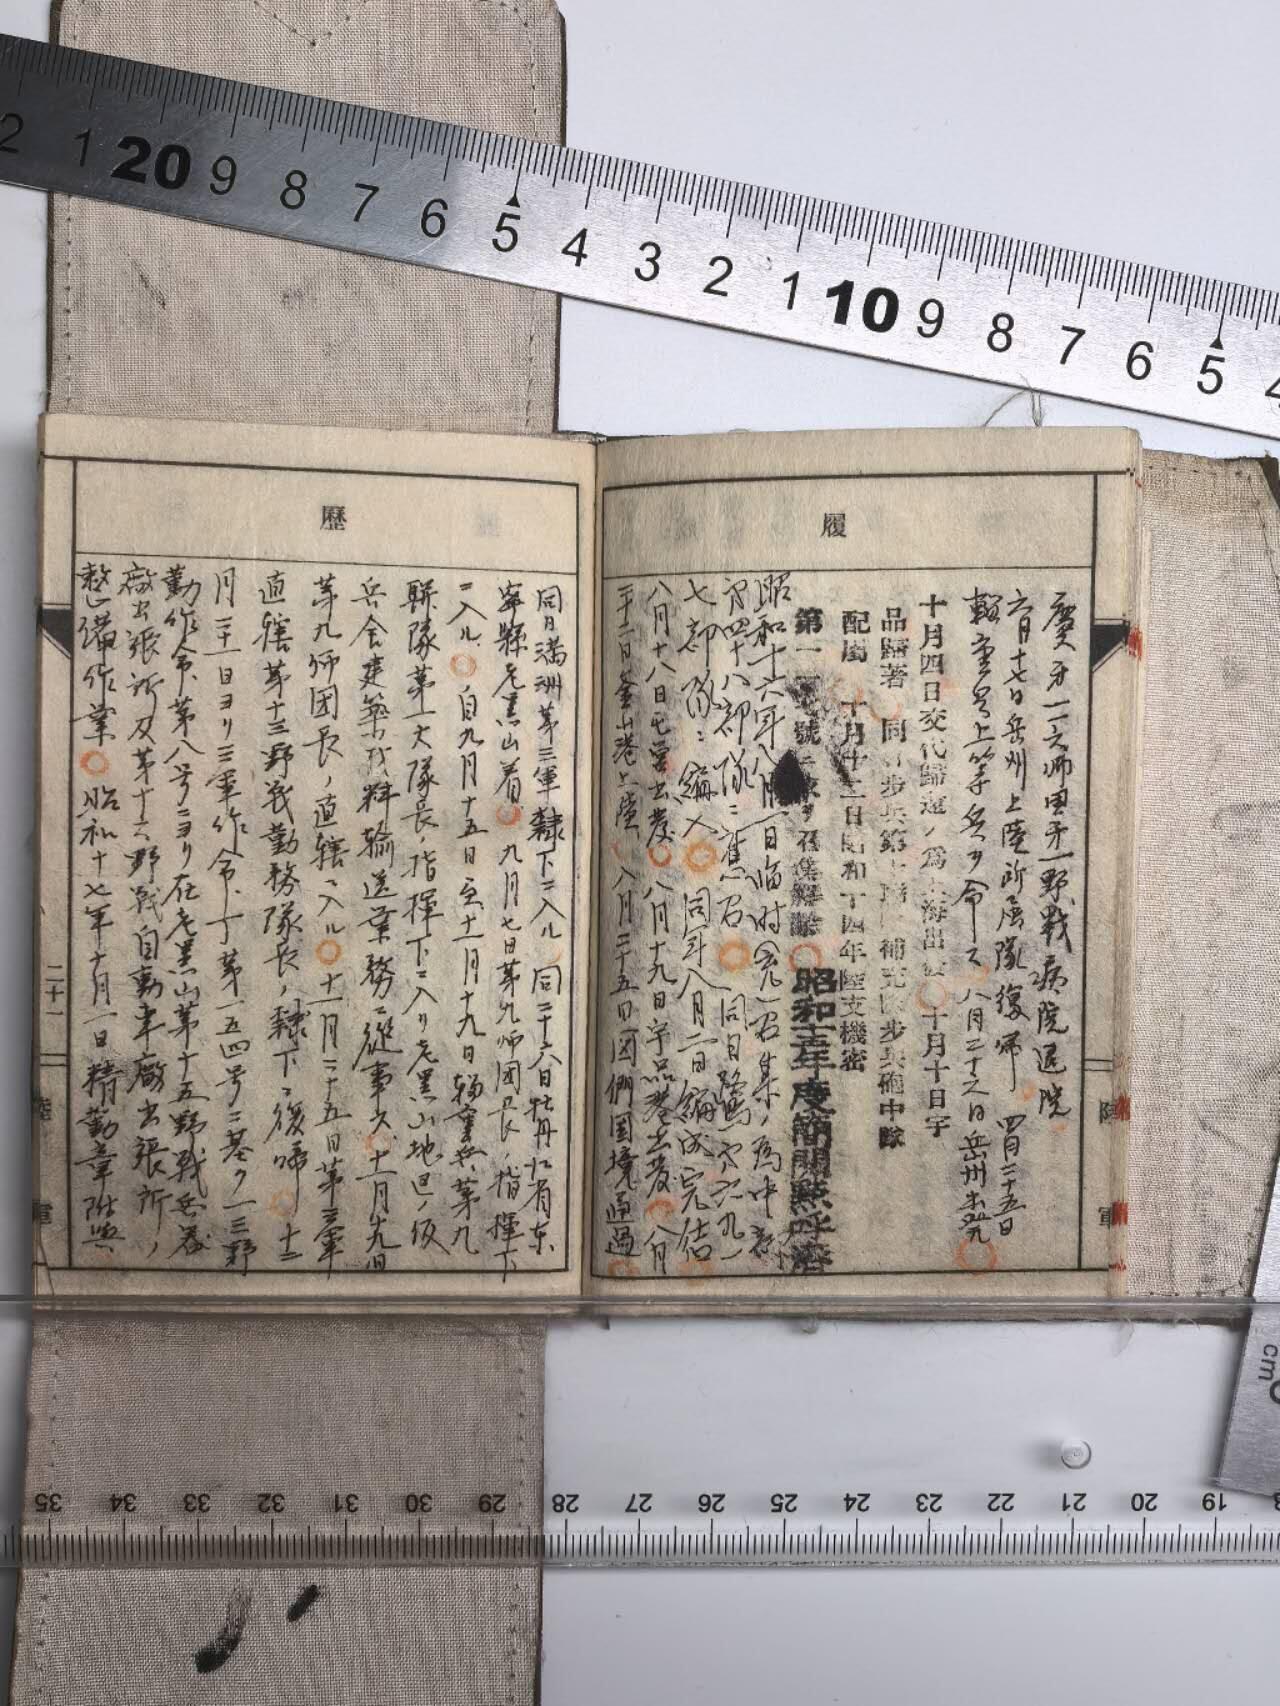 履
第一一六師団第一野戦病院退院
六月十七日岳州上陸所属隊復帰 四月二十五日
輜重兵上等兵ヲ命ス 八月二十六日岳州出発
十月四日交代帰還ノ為上海出 十月十日宇
品歸著 同 歩兵第 聯 補充隊歩兵砲中隊
配属 十月廿二日昭和十四年陸支機密
第一 號ニ ヲ召集解除 昭和 年度簡閲點呼済
昭和十六年八月一日臨時 召集ノ為中部
第四十八部隊ニ應召 同日鷺 九一
七部隊ニ編入 同年八月二日編成完結
八月十八日屯営出発 八月十九日宇品港出発 八月
二十二日釜山港上陸 八月二十五日図們国境通過
歷
同日満洲第三軍隷下ニ入ル 同二十六日牡丹江省東
寧縣老黒山着 九月七日第九師団長ノ指揮下
ニ入ル 自九月十五日至十一月十九日輜重兵第九
聯隊第一大隊長ノ指揮下ニ入リ老黒山地区ノ仮
兵舎建築材料輸送業務ニ従事ス 十一月 日
第九師団長ノ直轄ニ入ル 十一月二十五日第三軍
直轄第十三野戦勤務隊長ノ隷下ニ復帰 十二
月二十一日ヨリ三軍作命丁第一五四号ニ基ク一三野
勤作命第八号ニヨリ在老黒山第十五野戦兵器
廠出張所及第十六野戦自動車廠出張所ノ
整備作業 昭和十七年十月一日精勤章附與
二十一
陸
軍
陸
軍
2 1 20 9 8 7 6 5 4 3 2 1 10 9 8 7 6 5 4
35 34 33 32 31 30 29 28 27 26 25 24 23 22 21 20 19
cm
0